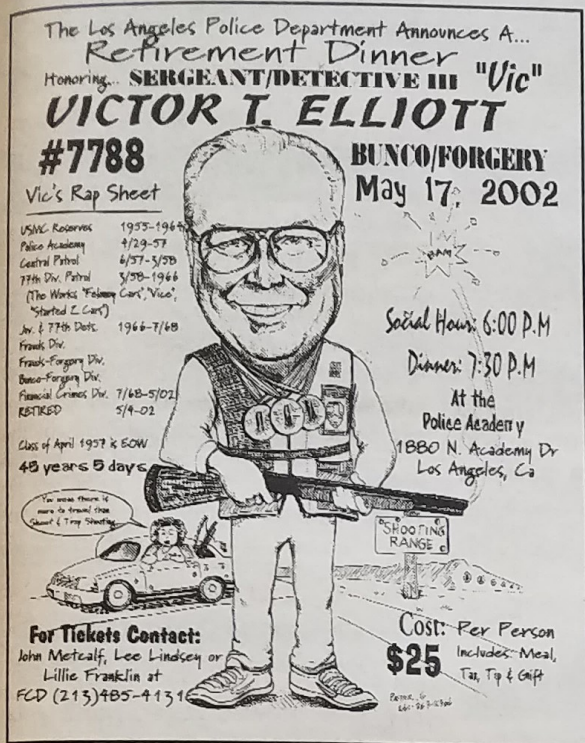 The Los Angeles Police Department Announces A...
Retirement Dinner
Honoring... SERGEANT/DETECTIVE III "Vic"
VICTOR T. ELLIOTT
#7788
BUNCO/FORGERY
May 17, 2002
Vic's Rap Sheet
USMC Reserves 1955-1964
Police Academy 4/29-57
Central Patrol 6/57-3/58
77th Div. Patrol 3/58-1966
(The Works "Felony Cars", "Vice",
"Started Z Cars")
Juv. & 77th Dets. 1966-7/68
Frauds Div.
Frauds-Forgery Div.
Bunco-Forgery Div.
Financial Crimes Div. 7/68-5/02
RETIRED 5/4-02
Class of April 1957 is EOW
45 years 5 days
BAM
Social Hour: 6:00 P.M
Dinner: 7:30 P.M
At the
Police Academy
1880 N. Academy Dr
Los Angeles, Ca
You mean there is
more to travel than
Skeet & Trap Shooting
SHOOTING
RANGE
For Tickets Contact:
John Metcalf, Lee Lindsey or
Lillie Franklin at
FCD (213)485-4131
Cost: Per Person
$25 Includes: Meal,
Tax, Tip & Gift